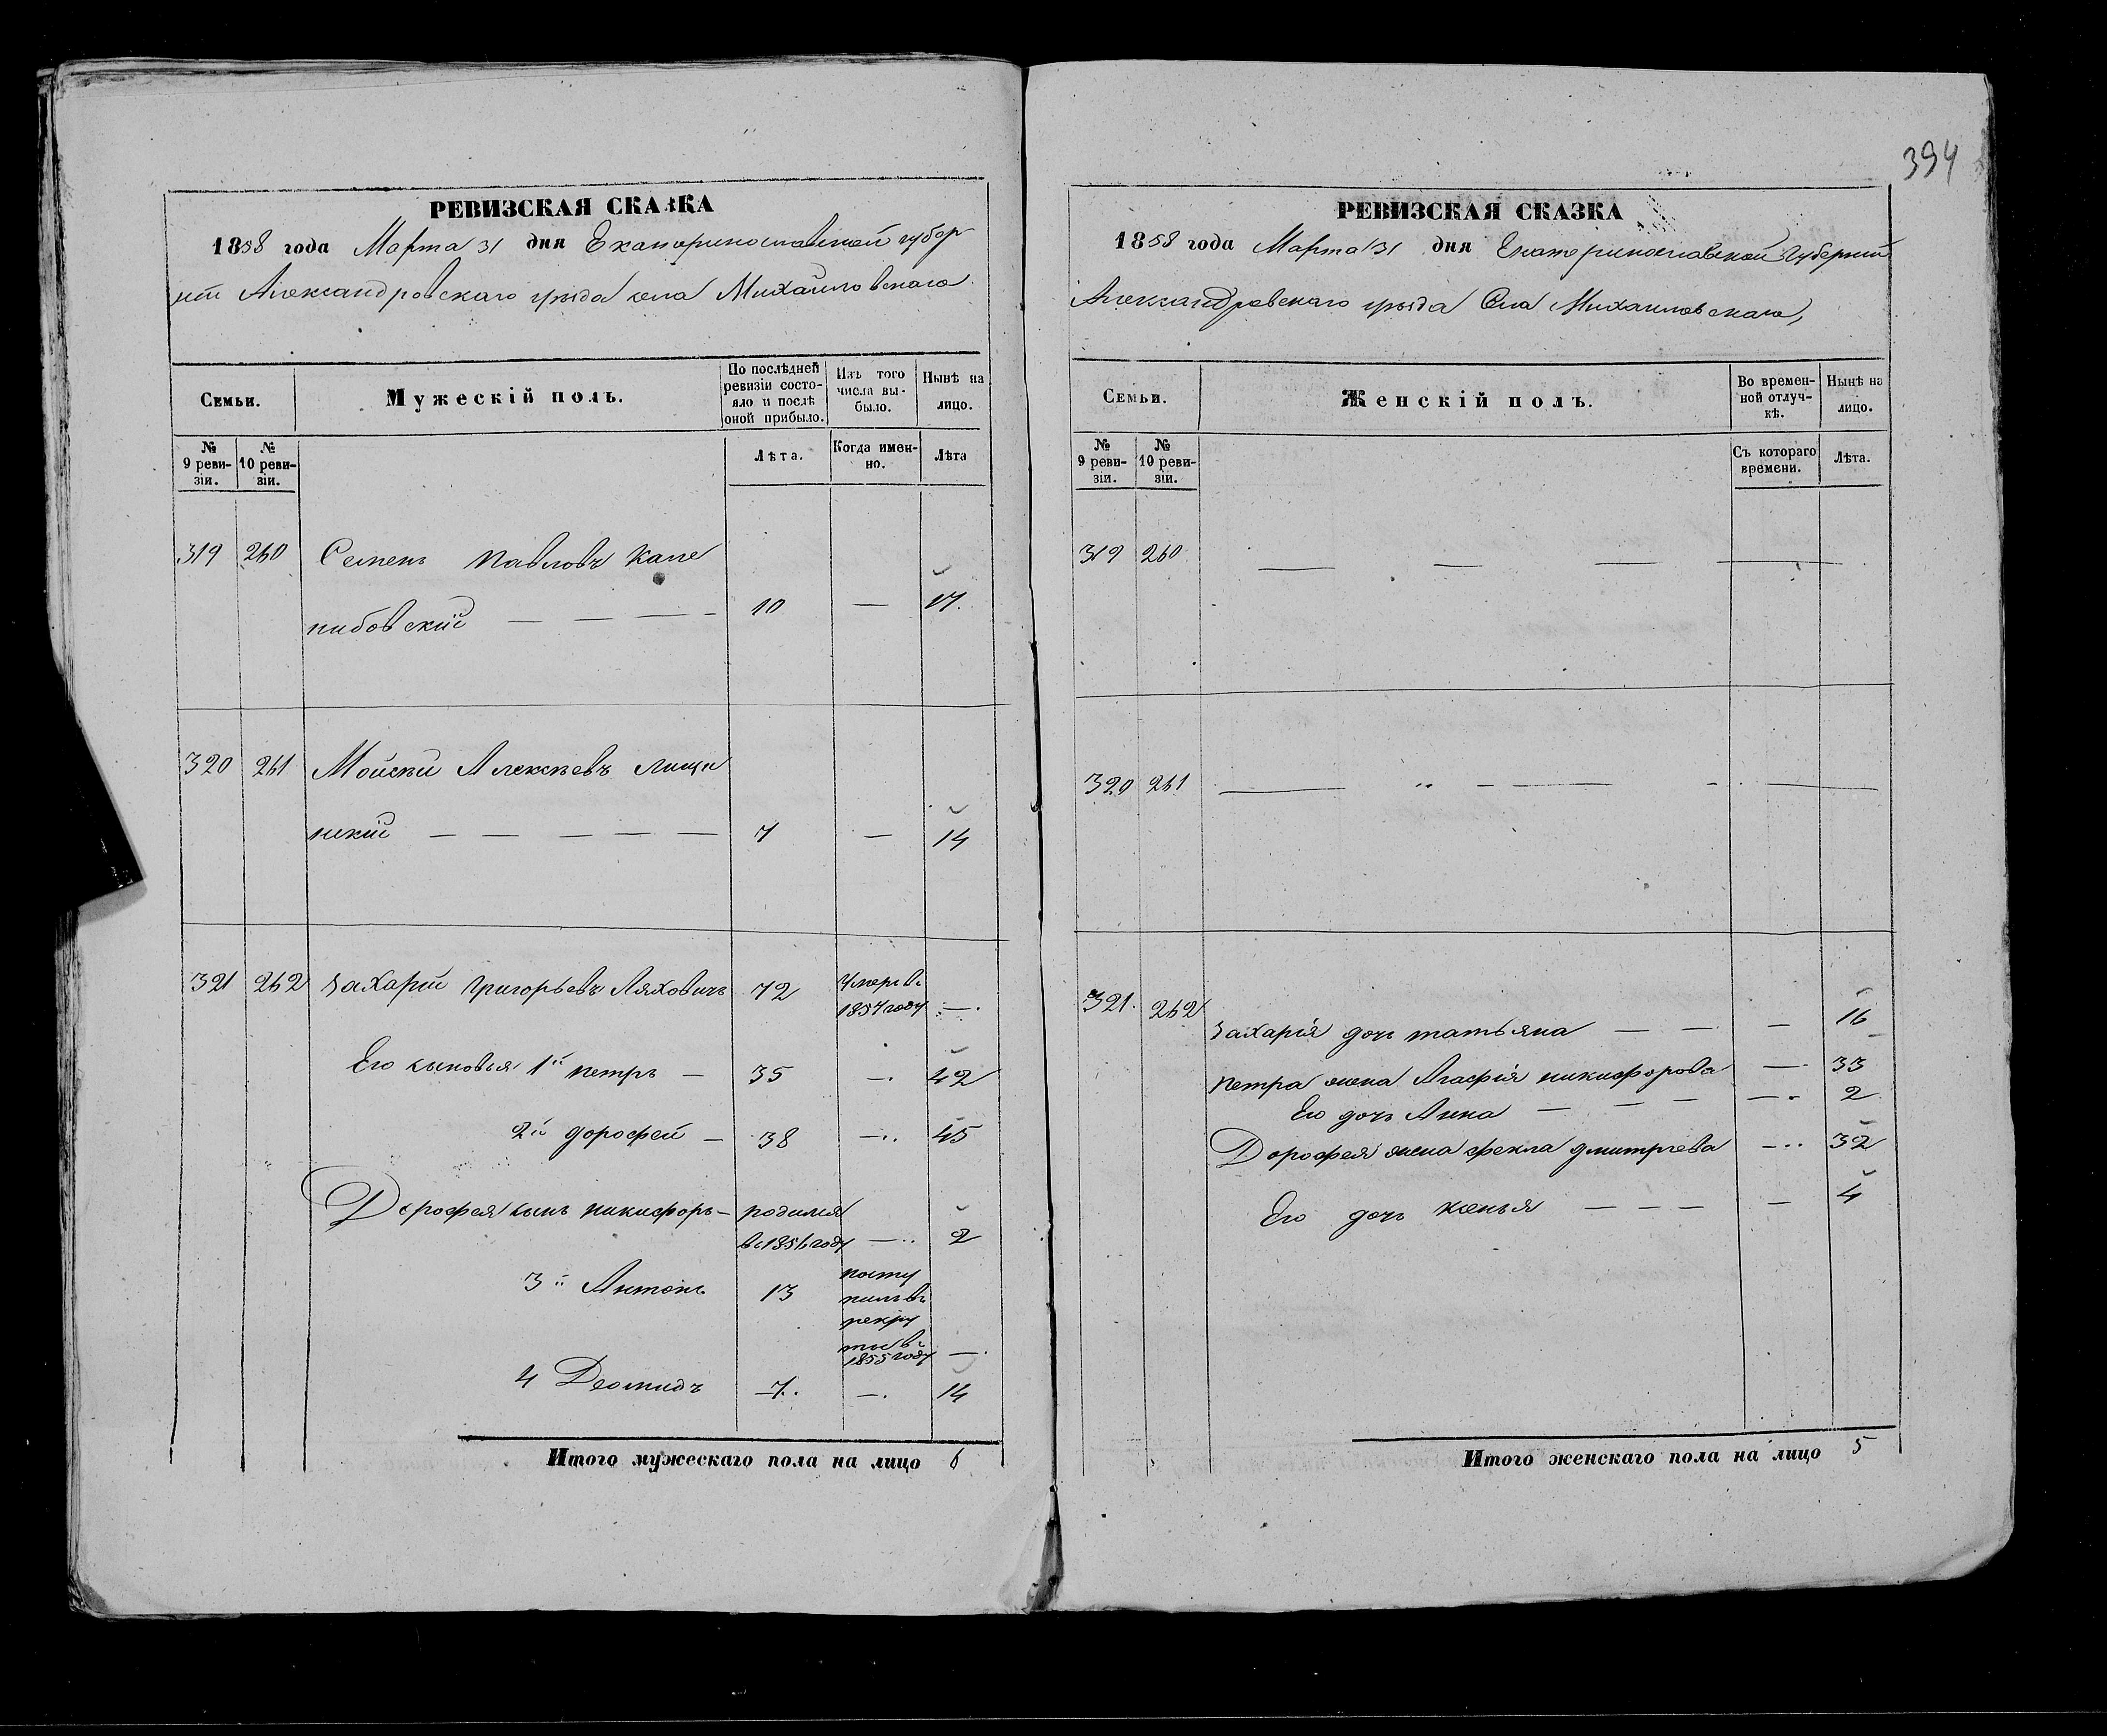 394
РЕВИЗСКАЯ СКАЗКА
1858 года Марта 31 дня Екатеринославской губер
ніи Александровскаго уѣзда села Михайловскаго
Семьи.
Мужескій полъ.
По послѣдней ревизіи состо-
яло и послѣ оной прибыло.
Изъ того числа вы-
было.
Нынѣ на лицо.
№ 9 реви-
зіи.
№ 10 реви-
зіи.
Лѣта.
Когда имен-
но.
Лѣта
319 260 Семенъ Павловъ
10 — 17.
320 261 Мойсѣй Алексѣевъ
7 — 14
321 262 Захарій Григорьевъ Ляховичъ 72 Умеръ въ
1857 году —
Его сыновья 1й петръ — 35 — 42
2й дорофей — 38 — 45
Дорофея сынъ никифоръ — родился
въ 1856 году — 2
3й Антонъ 13 посту
пилъ въ
рекру
ты въ
1855 году —
4 Деомидъ 7. — 14
Итого мужескаго пола на лицо 6
РЕВИЗСКАЯ СКАЗКА
1858 года Марта 31 дня Екатеринославской Губерніи
Александровскаго уѣзда Села Михайловскаго,
Семьи.
Женскій полъ.
Во времен-
ной отлуч-
кѣ.
Нынѣ на лицо.
№ 9 реви-
зіи.
№ 10 реви-
зіи.
Съ котораго времени.
Лѣта.
319 260 — — — —
320 261 — — — —
321. 262
Захарія дочь татьяна — — — 16
петра жена Агафія никифорова — 33
Его дочь Анна — — — — 2
Дорофея жена фекла дмитріева — 32
Его дочь ксенья — — — — 4
Итого женскаго пола на лицо 5